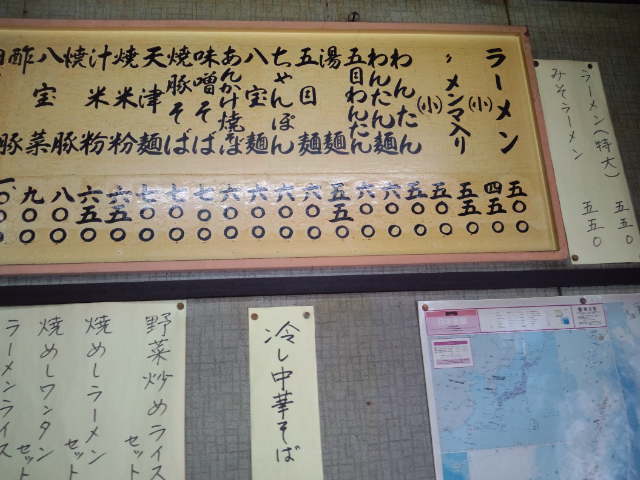 ラーメン 五〇〇
〃 (小) 四五〇
〃 メンマ入り 五五〇
(小) 五〇〇
わんたん 五〇〇
わんたん麺 六〇〇
五目わんたん 六〇〇
湯麺 五五〇
五目麺 六〇〇
ちゃんぽん 六〇〇
八宝麺 六〇〇
あんかけ焼そば 六〇〇
味噌そば 七〇〇
焼豚そば 七〇〇
天津麺 七〇〇
焼米粉 六五〇
汁米粉 六五〇
焼豚 八〇〇
八宝菜 九〇〇
ラーメン(特大) 五五〇
みそラーメン 五五〇
冷し中華そば
野菜炒めライス セット
焼めしラーメン セット
焼めしワンタン セット
ラーメンライス